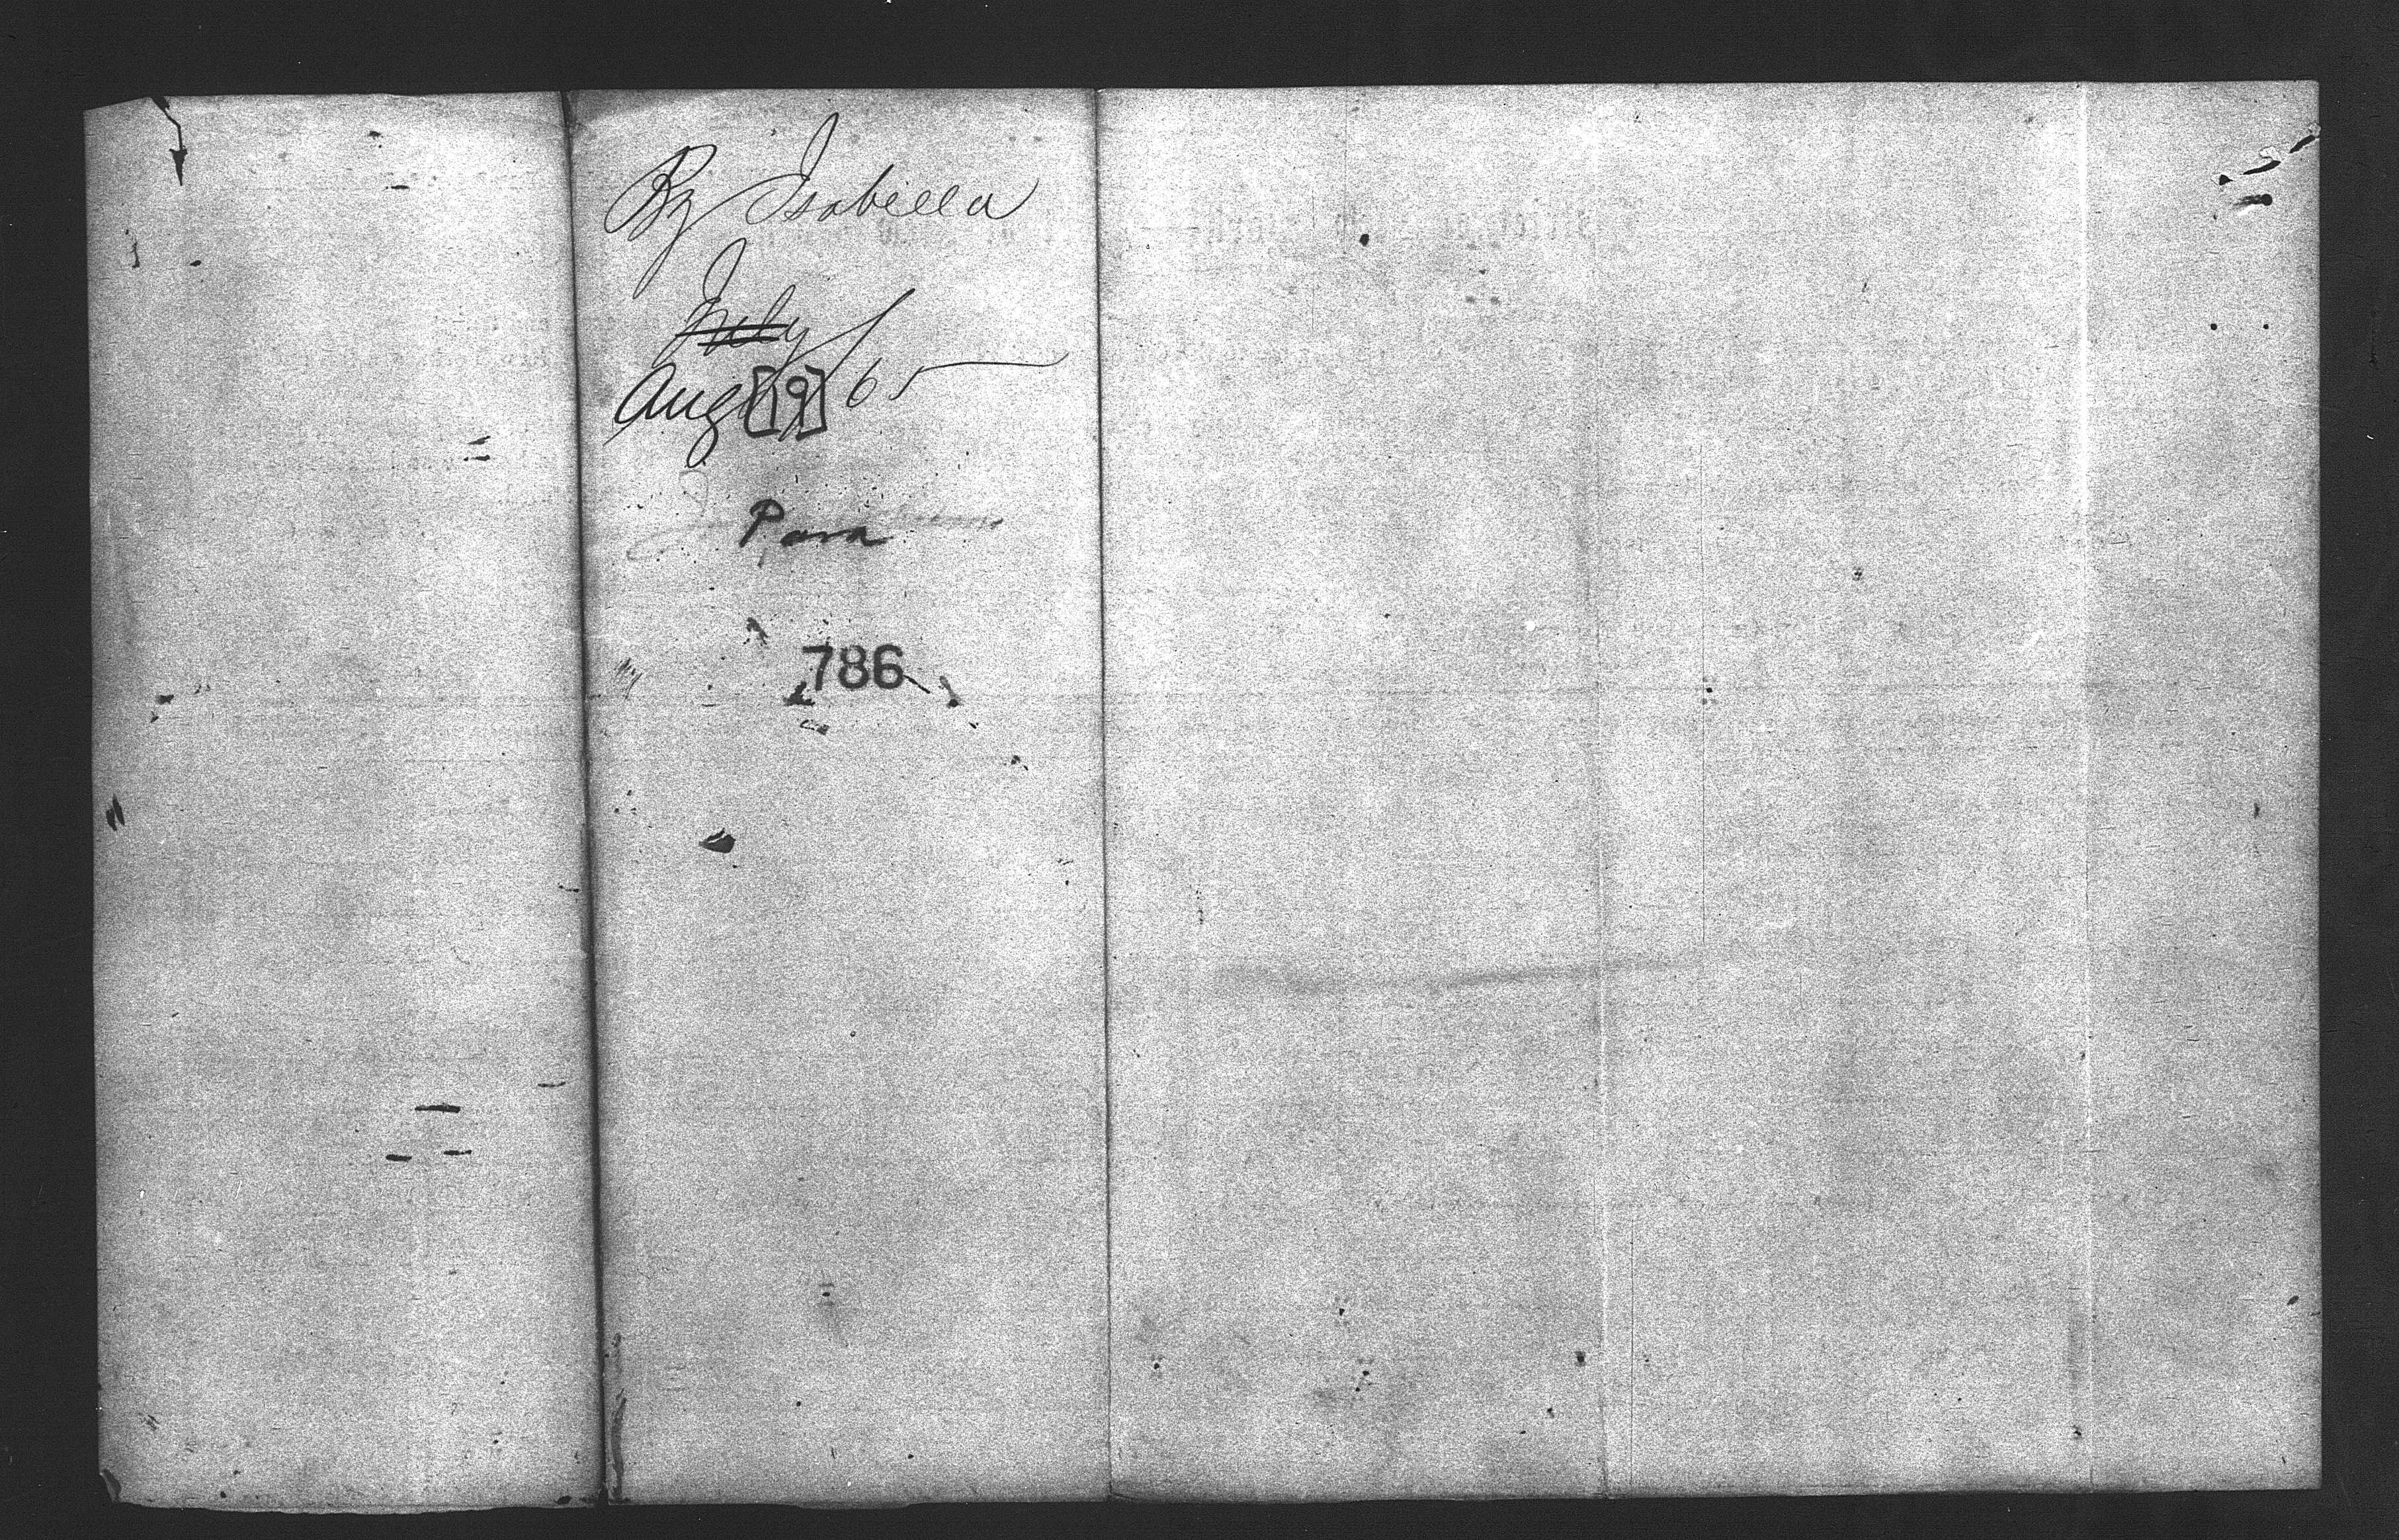 By Isabella
July
Aug [19] 65
Para
786